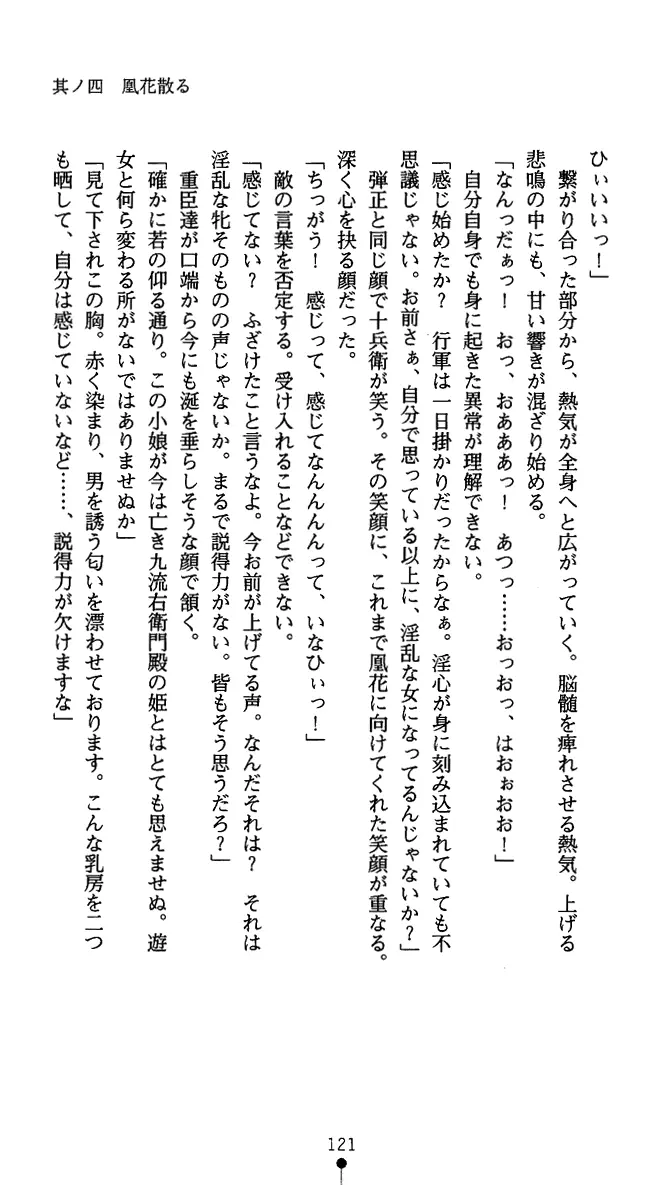 其ノ四　凰花散る
ひぃいいっ！」
　繋がり合った部分から、熱気が全身へと広がっていく。脳髄を痺れさせる熱気。上げる
悲鳴の中にも、甘い響きが混ざり始める。
「なんっだぁっ！　おっ、おあああっ！　あつっ……おっおっ、はおぉおお！」
　自分自身でも身に起きた異常が理解できない。
「感じ始めたか？　行軍は一日掛かりだったからなぁ。淫心が身に刻み込まれていても不
思議じゃない。お前さぁ、自分で思っている以上に、淫乱な女になってるんじゃないか？」
　弾正と同じ顔で十兵衛が笑う。その笑顔に、これまで凰花に向けてくれた笑顔が重なる。
深く心を抉る顔だった。
「ちっがう！　感じって、感じてなんんんんって、いなひぃっ！」
　敵の言葉を否定する。受け入れることなどできない。
「感じてない？　ふざけたこと言うなよ。今お前が上げてる声。なんだそれは？　それは
淫乱な牝そのものの声じゃないか。まるで説得力がない。皆もそう思うだろ？」
　重臣達が口端から今にも涎を垂らしそうな顔で頷く。
「確かに若の仰る通り。この小娘が今は亡き九流右衛門殿の姫とはとても思えませぬ。遊
女と何ら変わる所がないではありませぬか」
「見て下されこの胸。赤く染まり、男を誘う匂いを漂わせております。こんな乳房を二つ
も晒して、自分は感じていないなど……、説得力が欠けますな」
121